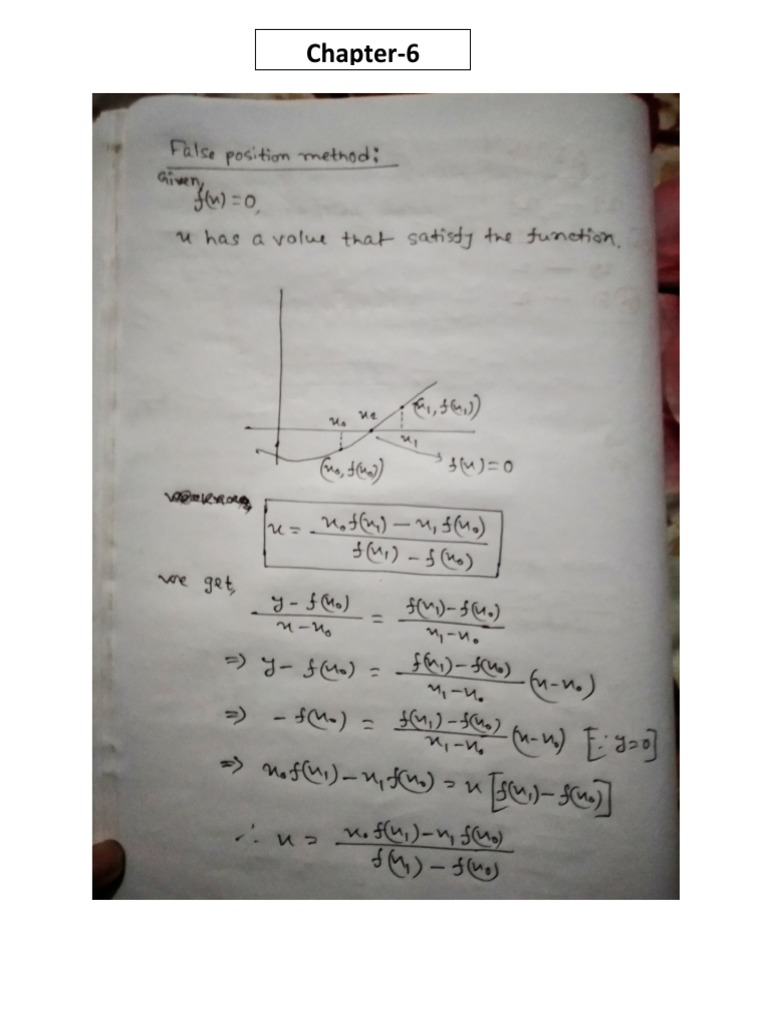 Chapter-6
False position method:
Given,
f(x) = 0,
x has a value that satisfy the function.
x₀ x₂ (x₁, f(x₁))
x₁
(x₀, f(x₀)) f(x) = 0
x = x₀f(x₁) – x₁f(x₀) / f(x₁) – f(x₀)
we get,
y – f(x₀) / x – x₀ = f(x₁) – f(x₀) / x₁ – x₀
⇒ y – f(x₀) = f(x₁) – f(x₀) / x₁ – x₀ (x – x₀)
⇒ – f(x₀) = f(x₁) – f(x₀) / x₁ – x₀ (x – x₀) [∵ y=0]
⇒ x₀f(x₁) – x₁f(x₀) = x [f(x₁) – f(x₀)]
∴ x = x₀f(x₁) – x₁f(x₀) / f(x₁) – f(x₀)